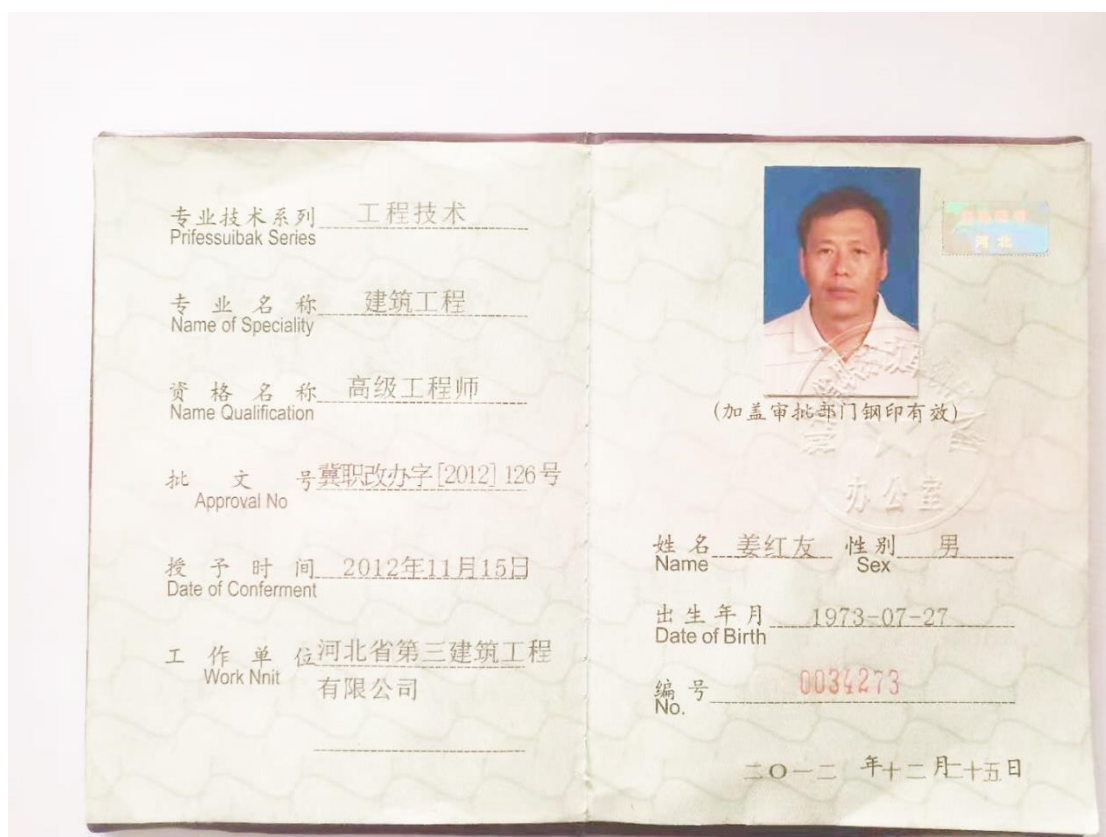 专业技术系列 工程技术
Prifessuibak Series
专业名称 建筑工程
Name of Speciality
资格名称 高级工程师
Name Qualification
批文号 冀职改办字[2012] 126号
Approval No
授予时间 2012年11月15日
Date of Conferment
工作单位 河北省第三建筑工程
Work Nnit
有限公司
河北
(加盖审批部门钢印有效)
办公室
姓名 姜红友 性别 男
Name Sex
出生年月 1973-07-27
Date of Birth
编号 0034273
No.
二〇一二 年十二月二十五日